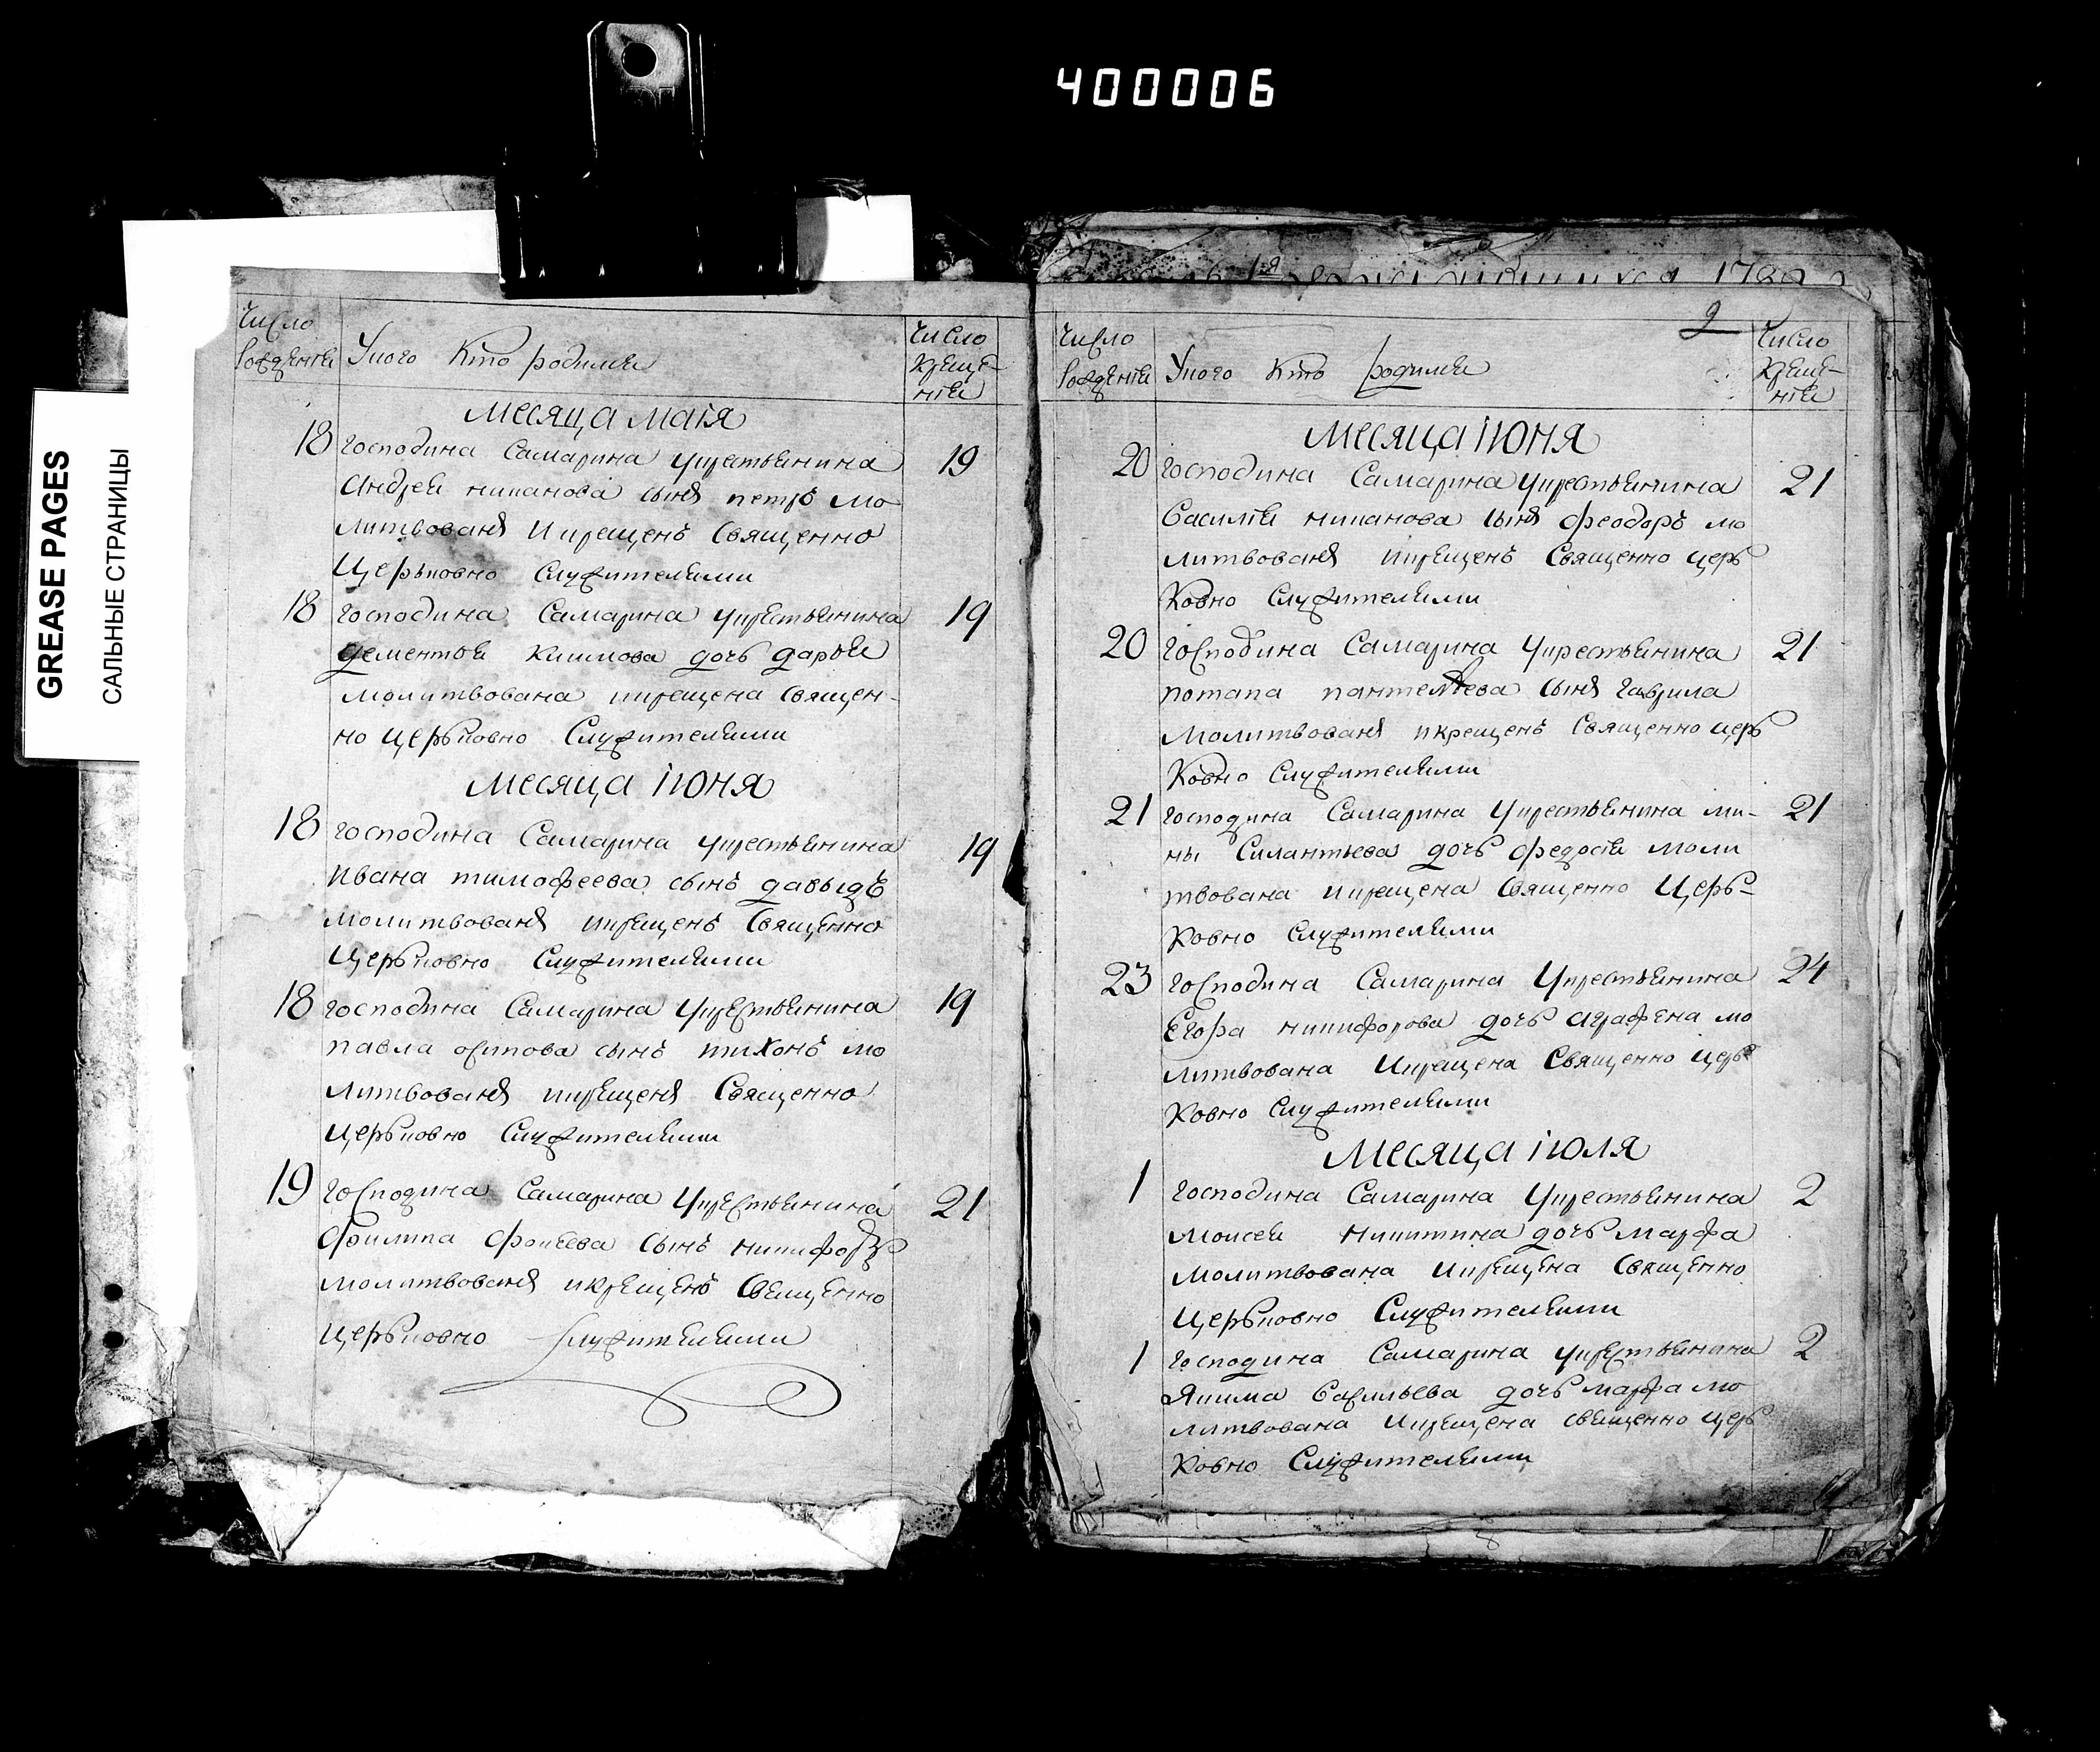 400006
GREASE PAGES
САЛЬНЫЕ СТРАНИЦЫ
Число рождения
Уного Кто родился
Число крещения
Месяца маія
18 господина Самарина укрестьянина 19
Андрея никанова сынъ петръ мо
литвованъ и крещенъ Священно
Церьковно Служителями
18 господина Самарина укрестьянина 19
дементья Климова дочь дарья
молитвована икрещена священ-
но церьковно Служителями
Месяца іюня
18 господина Самарина укрестьянина 19
ивана тимофеева сынъ давыдъ
молитвованъ икрещенъ Священно
Церьковно Служителями
18 господина Самарина укрестьянина 19
павла осипова сынъ тихонъ мо
литвованъ икрещенъ Священно
церьковно Служителями
19 господина Самарина укрестьянина 21
Филипа Фокеева сынъ никифоръ
молитвованъ икрещенъ Священно
церьковно Служителями
1789
2
Число рождения
Уного Кто родился
Число крещения
Месяца іюня
20 господина Самарина укрестьянина 21
Василія никанова сынъ феодоръ мо
литвованъ икрещенъ Священно церь
Ковно Служителями
20 господина Самарина укрестьянина 21
потапа пантелѣева сынъ гаврила
Молитвованъ икрещенъ Священно церь
Ковно Служителями
21 господина Самарина укрестьянина ми- 21
ны Силантьева дочь федосія моли
твована икрещена Священно Церь-
Ковно Служителями
23 господина Самарина укрестьянина 24
Егора никифорова дочь аграфена мо
литвована икрещена Священно церь
Ковно Служителями
Месяца іюля
1 господина Самарина укрестьянина 2
Моисея никитина дочь марфа
молитвована икрещена Священно
церьковно Служителями
1 господина Самарина укрестьянина 2
Якима Васильева дочь марфа мо
литвована икрещена священно церь
Ковно Служителями